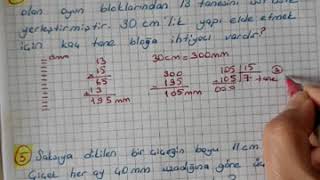 olan oyun bloklarından 13 tanesini
yerleştirmiştir. 30 cm'lik yapı elde etmek
için kaç tane bloğa ihtiyacı vardır?
13
x 15
65
+ 13
195 mm
30cm = 300mm
300
- 195
105 mm
105 | 15
- 105 | 7 tane
000
5 Saksıya dikilen bir çiçeğin boyu 11 cm.
Çiçek her ay 40 mm uzadığına göre